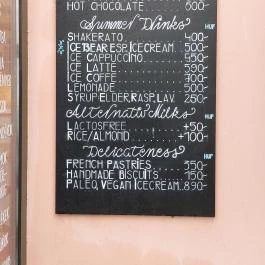 HOT CHOCOLATE 600-
Summer Drinks HUF
SHAKERATO 400-
ICEBEAR ESP. ICECREAM 500-
ICE CAPPUCCINO 550-
ICE LATTE 590-
ICE COFFE 700-
LEMONADE 500-
SYRUP: ELDER, RASP, LAV. 250-
Alternativ Milks HUF
LACTOSFREE +50-
RICE/ALMOND +100-
Delicateness HUF
FRENCH PASTRIES 350-
HANDMADE BISCUITS 150-
PALEO, VEGAN ICECREAM 890-